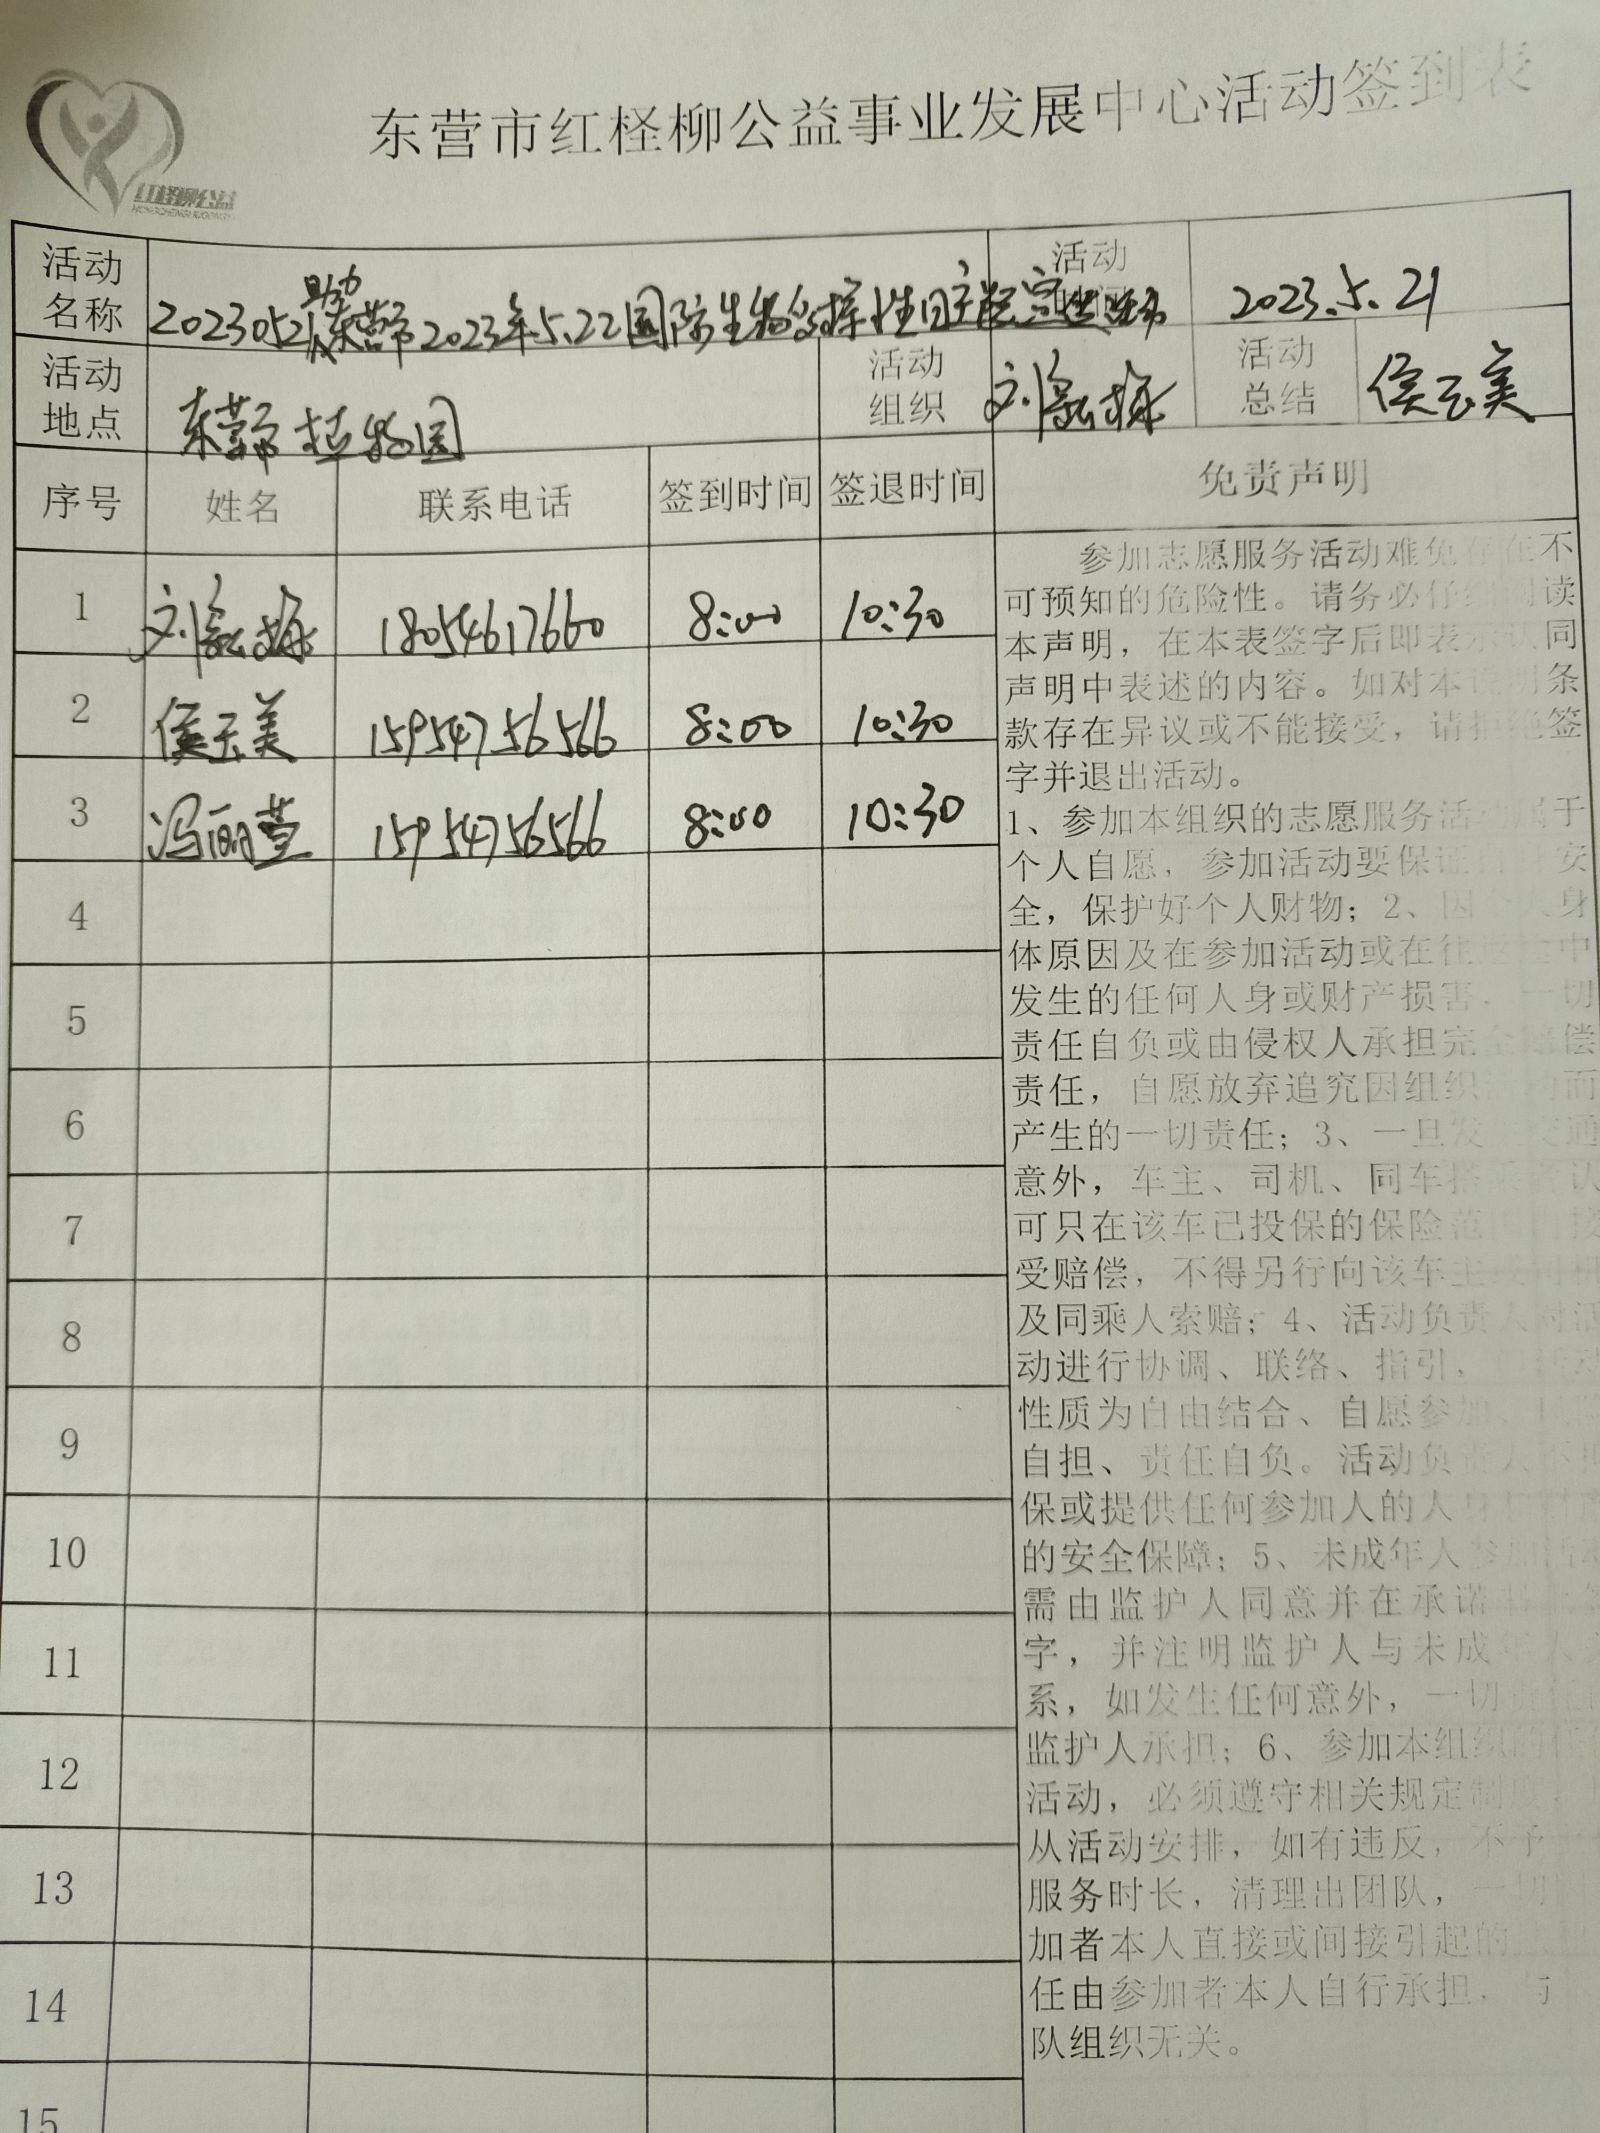 东营市红柽柳公益事业发展中心活动签到表
红柽柳公益
活动名称 20230521助力东营市2023年5.22国际生物多样性日主 活动 2023.5.21
活动地点 东营市植物园 活动组织 活动总结 侯云美
序号 姓名 联系电话 签到时间 签退时间 免责声明
1 刘 18054617660 8:00 10:30
2 侯云美 15954756566 8:00 10:30
3 冯丽萱 15954756566 8:00 10:30
4
5
6
7
8
9
10
11
12
13
14
15
参加志愿服务活动难免存在不
可预知的危险性。请务必仔细阅读
本声明，在本表签字后即表示认同
声明中表述的内容。如对本说明条
款存在异议或不能接受，请拒绝签
字并退出活动。
1、参加本组织的志愿服务活动属于
个人自愿，参加活动要保证 安
全，保护好个人财物；2、因个人身
体原因及在参加活动或在往返途中
发生的任何人身或财产损害，一切
责任自负或由侵权人承担完全赔偿
责任，自愿放弃追究因组织活动而
产生的一切责任；3、一旦发 交通
意外，车主、司机、同车搭乘者认
可只在该车已投保的保险范 接
受赔偿，不得另行向该车主 司机
及同乘人索赔；4、活动负责人对活
动进行协调、联络、指引， 活动
性质为自由结合、自愿参加 风险
自担、责任自负。活动负责人不担
保或提供任何参加人的人身
的安全保障；5、未成年人参加活动
需由监护人同意并在承诺书上签
字，并注明监护人与未成年人关
系，如发生任何意外，一切责任
监护人承担；6、参加本组织的任何
活动，必须遵守相关规定制度，
从活动安排，如有违反，不予
服务时长，清理出团队，一切
加者本人直接或间接引起的
任由参加者本人自行承担，与
队组织无关。